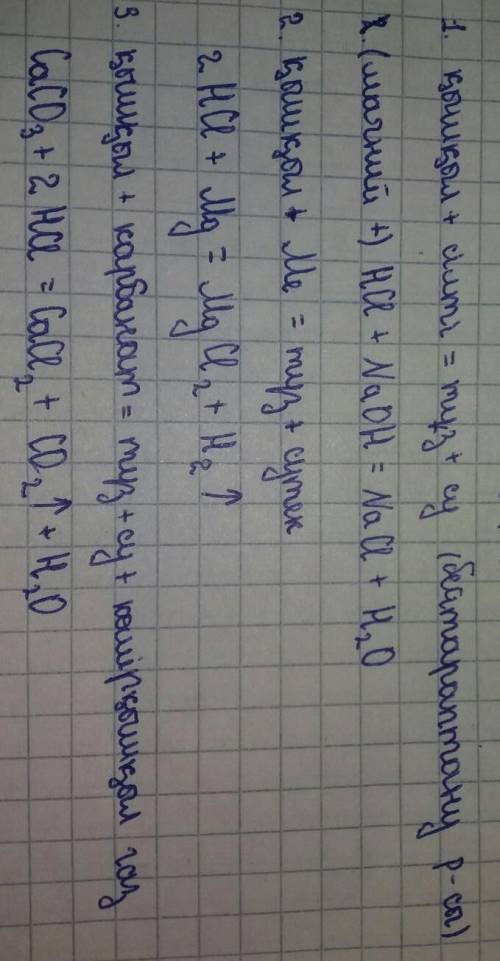 1. қышқыл + сілті = тұз + су (бейтараптану р-сы)
2. (магний +) HCl + NaOH = NaCl + H₂O
2. қышқыл + Ме = тұз + сутек
2 HCl + Mg = MgCl₂ + H₂↑
3. қышқыл + карбанат = тұз + су + көмірқышқыл газ
CaCO₃ + 2 HCl = CaCl₂ + CO₂↑ + H₂O